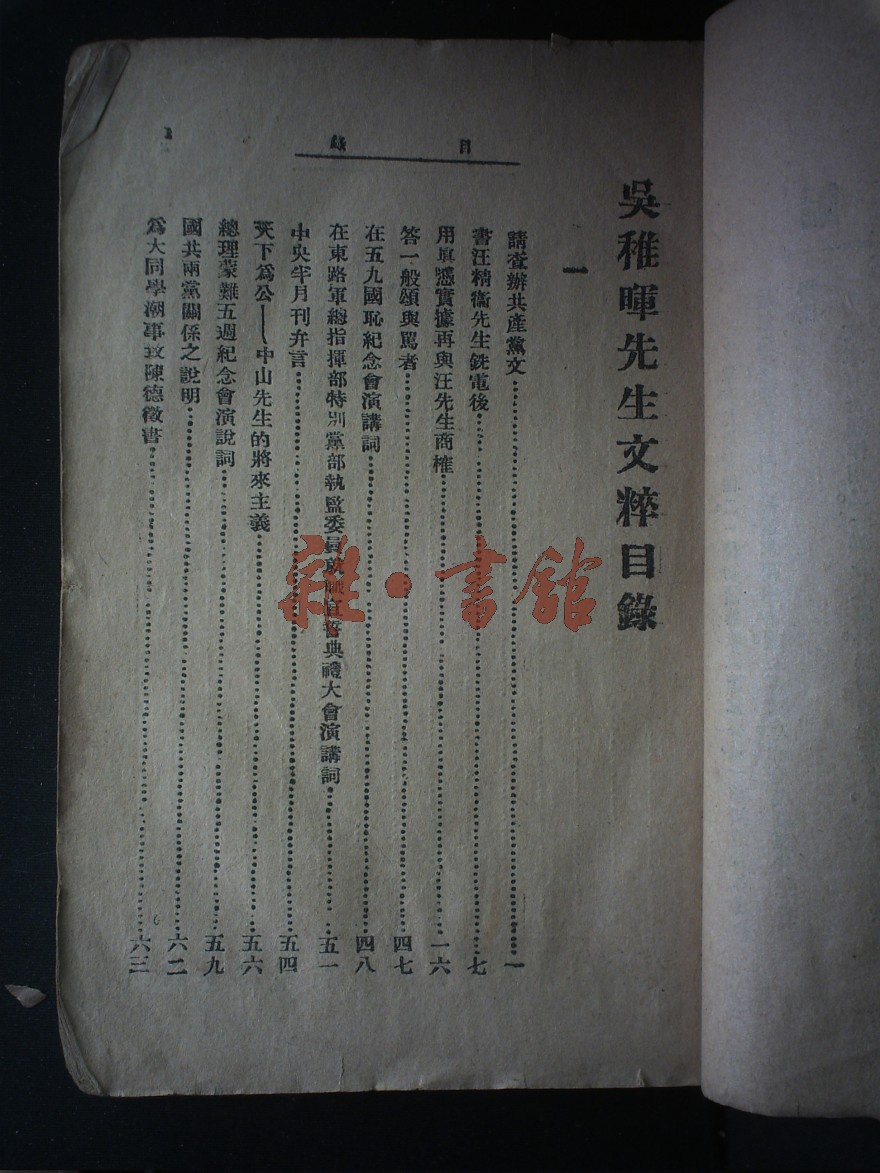 目錄
吳稚暉先生文粹目錄
一
請查辦共產黨文………一
書汪精衛先生銑電後………七
用真憑實據再與汪先生商榷………一六
答一般頌與罵者………四七
在五九國恥紀念會演講詞………四八
在東路軍總指揮部特別黨部執監委員就職宣誓典禮大會演講詞………五一
中央半月刊弁言………五四
天下為公——中山先生的將來主義………五六
總理蒙難五週紀念會演說詞………五九
國共兩黨關係之說明………六二
為大同學潮事致陳德徵書………六三
雜·書館